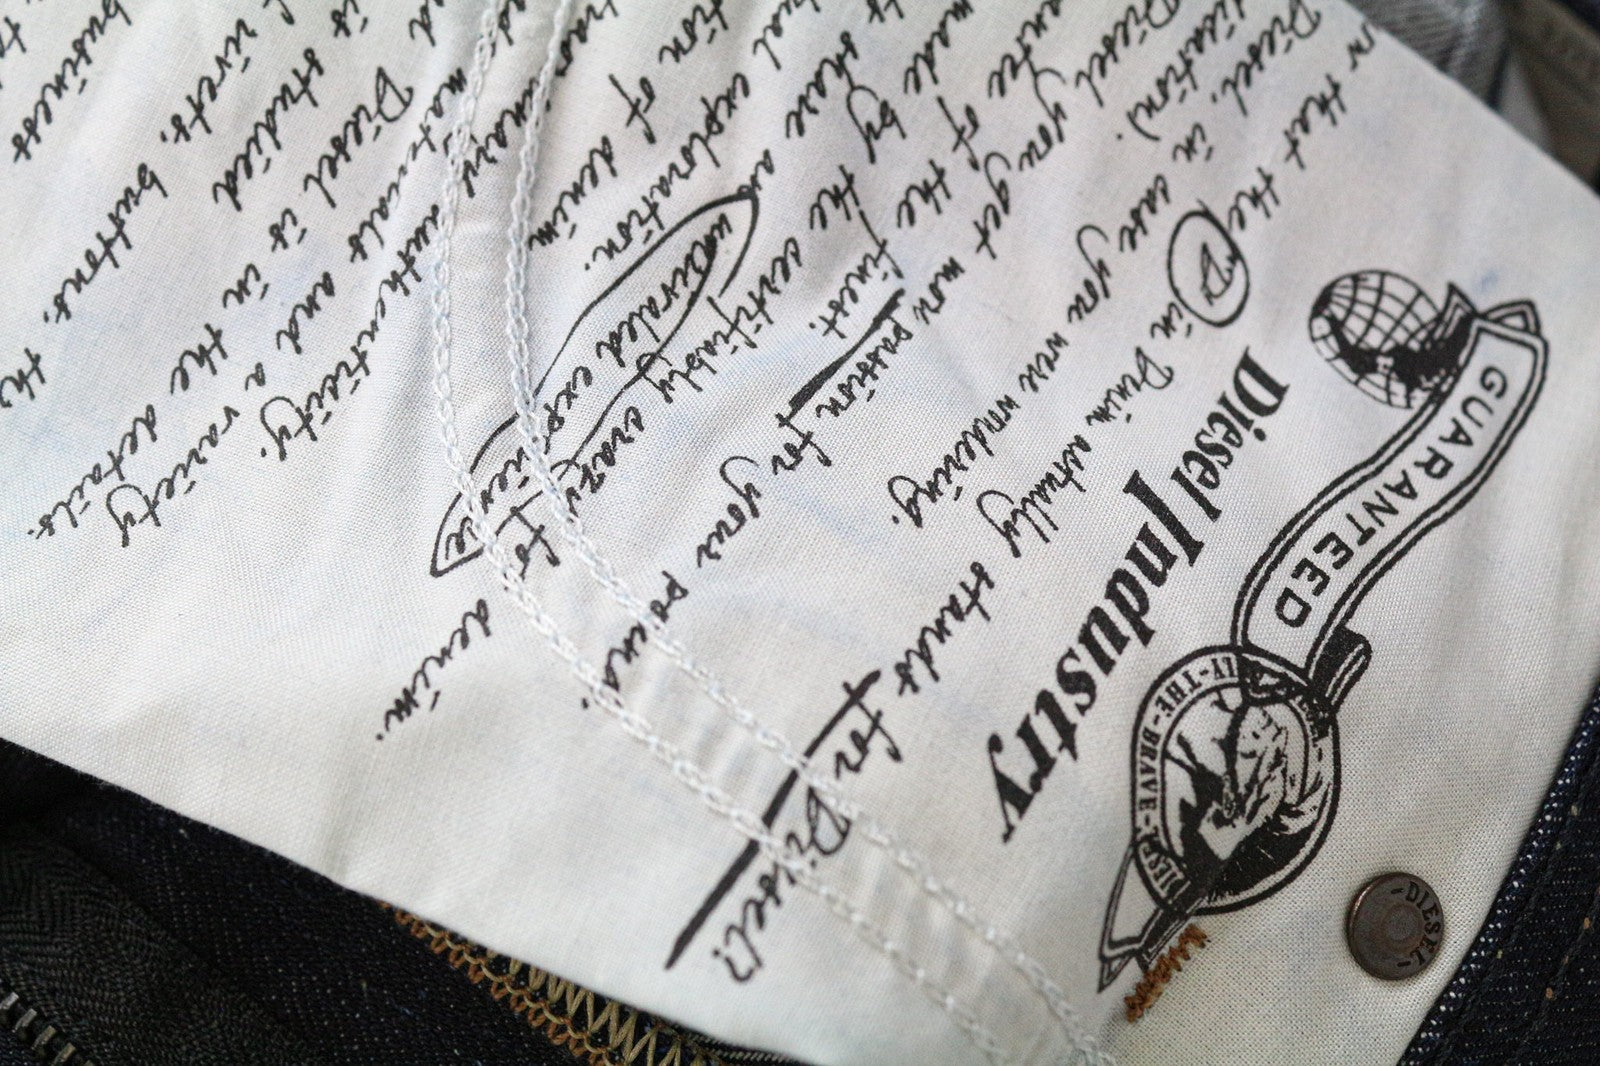 GUARANTEED
Diesel Industry
ONLY-THE-BRAVE-
DIESEL
that the D in Denim actually stands for Diesel!?
Diesel. in case you were wondering.
dication).
Diesel you get more passion for your pound.
antee of the finest.
made by the certifiably crazy for denim.
ts share an unrivaled experience
tual exploration.
tion of denim
authenticity.
materials and a variety
Diesel is in the details.
is studied
rivets, buttons.
business